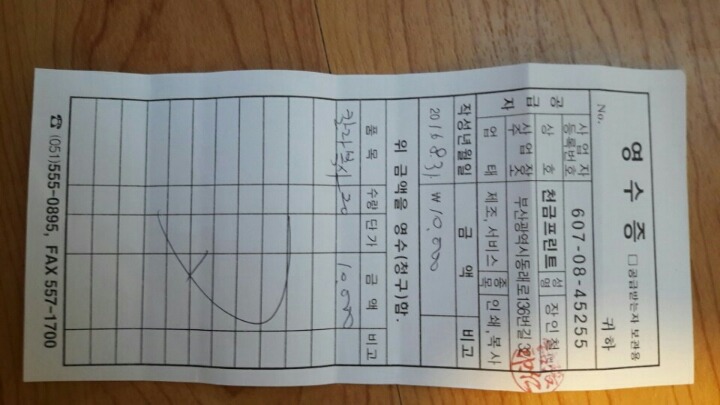 영 수 증 □ 공급받는자 보관용
No. 귀 하
공 급 자
사업자 등록번호 607-08-45255
상 호 천금프린트 성명 장인철
사업장 주소 부산광역시동래로136번길
업 태 제조, 서비스 종목 인쇄, 복사
작성년월일 금 액 비고
2016.8.31 ₩10,000
위 금액을 영수(청구)함.
품 목 수량 단가 금 액 비고
칼라복사 20 10,000
☎ (051)555-0895, FAX 557-1700